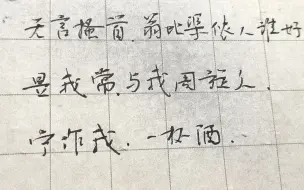 无言搔首. 翁比渠侬人谁好
是我常、与我周旋久.
宁作我. 一杯酒.